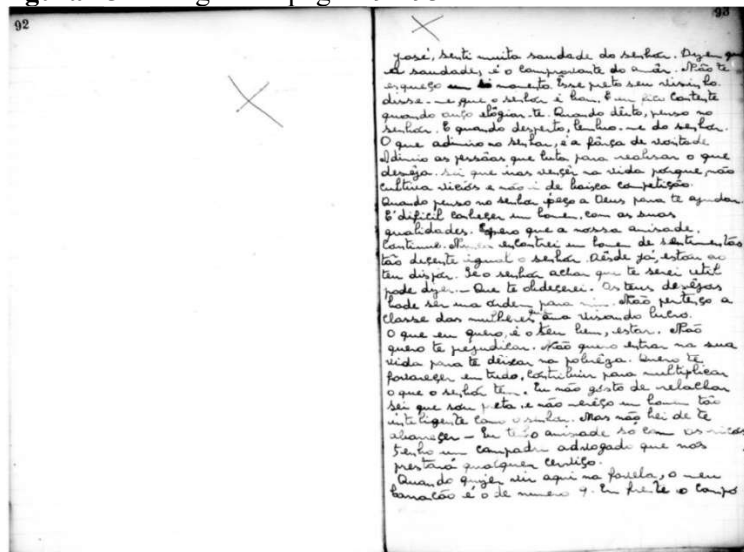 92
93
José, senti muita saudade do senhor. Dizem que
a saudade, é o comprovante do amôr. Não te
esqueço um só momento. Esse preto seu visinho
disse-me, que o senhor é bom. E eu fico contente
quando ouço elôgiar-te. Quando dêito, penso no
senhor. E quando desperto, lembro-me do senhor.
O que admiro no senhor, é a fôrça de vontade
Admiro as pessôas que luta para realisar o que
desêja. Sei que irás vençêr na vida pórque não
cultiva viciós e não é de baixa competição.
Quando penso no senhor pêço a Deus para te ajudar.
É dificil conheçer um homem, com as suas
qualidades. Espero que a nossa amisade,
continue. Nunca encontrei um homem de sentimentos
tão deçente igual o senhor. Dêsde já, estou ao
teu dispôr. Se o senhor achar que te serei util
pode dizer. - Que te obdeçerei. Os teus desêjos
hade ser uma órdem para mim. Não pertenço a
classe das mulheres que ama visando lucro.
O que eu quero, é o teu bem, estar. Não
quero te prejudicar. Não quero entrar na sua
vida para te dêixar na pobrêza. Quero te
favoreçer em tudo, contribuir para multiplicar
o que o senhor tem. Eu não gósto de relachar
Sei que sou preta, e não merêço um homem tão
inteligente como o senhor. Mas não hei de te
aborreçer - Eu tenho amisade só com os ricos
tenho um compadre advogado que nos
prestará qualquer cerviço.
Quando quizer vir aqui na favela, o meu
barracão é o de numero 9. Em frente o campo